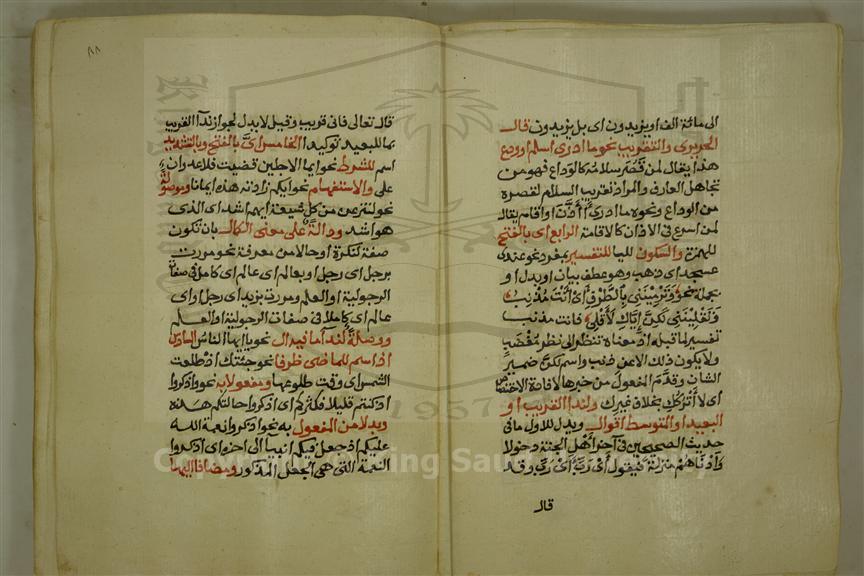 الى مائة الف او يزيدون اى بل يزيدون قال
الحريرى والتقريب نحو ما ادرى اسلم او ودع
هذا يقال لمن قصر سلامه كالوداع فهو من
تجاهل العارف والمراد تقريب السلام لقصره
من الوداع ونحوه ما ادرى أأذن او اقام يقال
لمن اسرع فى الاذان كالاقامة الرابع اى بالفتح
للهمزة والسكون لليا للتفسير بمفرد نحو عندى
عسجد اى ذهب وهو عطف بيان او بدل او
بجملة نحو وترمينني بالطرف أى أنت مذنب
وتقلينني لكن إياك لا أقلى فانت مذنب
تفسير لما قبله اذ معناه تنظر الى نظر مغضب
ولا يكون ذلك الا عن ذنب واسم لكن ضمير
الشان وقدم المفعول من خبرها لافادة الاختصاص
اى لا أتركك بخلاف غيرك ولندا القريب او
البعيد او المتوسط اقوال ويدل للاول ما فى
حديث الصحيحين فى آخر أهل الجنة دخولا
وأدناهم منزلة فيقول أى رب أى رب وقد
قال
٨٨
قال تعالى فانى قريب وقيل لا يدل لجواز ندآ القريب
بما للبعيد توكيدا الخامس اى بالفتح وبالتشديد
اسم للشرط نحو ايما الاجلين قضيت فلا عدوان
على والاستفهام نحو ايكم زادته هذه ايمانا وموصولة
نحو لننزعن من كل شيعة ايهم اشد اى الذى
هو اشد ودالة على معنى الكمال بان تكون
صفة لنكرة او حالا من معرفة نحو مررت
برجل اى رجل او بعالم اى عالم اى كامل فى صفات
الرجولية او العلم ومررت بزيد اى رجل او اى
عالم اى كاملا فى صفات الرجولية او العلم
ووصلة لندآ ما فيه ال نحو يا ايها الناس السادس
اذ اسم للماضى ظرفا نحو جئتك اذ طلعت
الشمس اى وقت طلوعها ومفعولا به نحو واذكروا
اذ كنتم قليلا فكثركم اى اذكروا حالتكم هذه
وبدلا من المفعول به نحو اذكروا نعمة الله
عليكم اذ جعل فيكم انبيآ الى اخره اى اذكروا
النعمة التى هى الجعل المذكور ومضافا اليها
Copyright © King Saud University
1957